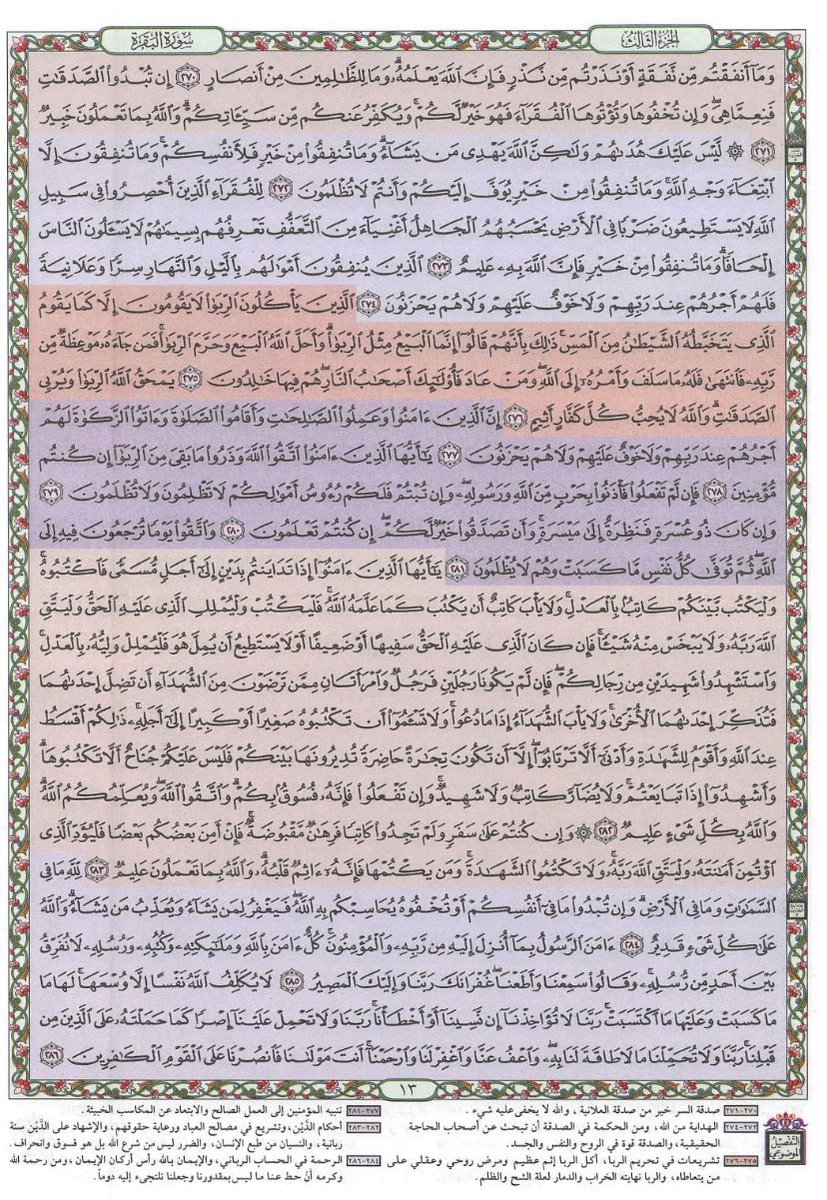 الجزء الثالث
سورة البقرة
وَمَآ أَنفَقۡتُم مِّن نَّفَقَةٍ أَوۡ نَذَرۡتُم مِّن نَّذۡرٖ فَإِنَّ ٱللَّهَ يَعۡلَمُهُۥۗ وَمَا لِلظَّٰلِمِينَ مِنۡ أَنصَارٍ ٢٧٠ إِن تُبۡدُواْ ٱلصَّدَقَٰتِ
فَنِعِمَّا هِيَۖ وَإِن تُخۡفُوهَا وَتُؤۡتُوهَا ٱلۡفُقَرَآءَ فَهُوَ خَيۡرٞ لَّكُمۡۚ وَيُكَفِّرُ عَنكُم مِّن سَيِّـَٔاتِكُمۡۗ وَٱللَّهُ بِمَا تَعۡمَلُونَ خَبِيرٞ
٢٧١ ۞ لَّيۡسَ عَلَيۡكَ هُدَىٰهُمۡ وَلَٰكِنَّ ٱللَّهَ يَهۡدِي مَن يَشَآءُۗ وَمَا تُنفِقُواْ مِنۡ خَيۡرٖ فَلِأَنفُسِكُمۡۚ وَمَا تُنفِقُونَ إِلَّا
ٱبۡتِغَآءَ وَجۡهِ ٱللَّهِۚ وَمَا تُنفِقُواْ مِنۡ خَيۡرٖ يُوَفَّ إِلَيۡكُمۡ وَأَنتُمۡ لَا تُظۡلَمُونَ ٢٧٢ لِلۡفُقَرَآءِ ٱلَّذِينَ أُحۡصِرُواْ فِي سَبِيلِ
ٱللَّهِ لَا يَسۡتَطِيعُونَ ضَرۡبٗا فِي ٱلۡأَرۡضِ يَحۡسَبُهُمُ ٱلۡجَاهِلُ أَغۡنِيَآءَ مِنَ ٱلتَّعَفُّفِ تَعۡرِفُهُم بِسِيمَٰهُمۡ لَا يَسۡـَٔلُونَ ٱلنَّاسَ
إِلۡحَافٗاۗ وَمَا تُنفِقُواْ مِنۡ خَيۡرٖ فَإِنَّ ٱللَّهَ بِهِۦ عَلِيمٌ ٢٧٣ ٱلَّذِينَ يُنفِقُونَ أَمۡوَٰلَهُم بِٱلَّيۡلِ وَٱلنَّهَارِ سِرّٗا وَعَلَانِيَةٗ
فَلَهُمۡ أَجۡرُهُمۡ عِندَ رَبِّهِمۡ وَلَا خَوۡفٌ عَلَيۡهِمۡ وَلَا هُمۡ يَحۡزَنُونَ ٢٧٤ ٱلَّذِينَ يَأۡكُلُونَ ٱلرِّبَوٰاْ لَا يَقُومُونَ إِلَّا كَمَا يَقُومُ
ٱلَّذِي يَتَخَبَّطُهُ ٱلشَّيۡطَٰنُ مِنَ ٱلۡمَسِّۚ ذَٰلِكَ بِأَنَّهُمۡ قَالُوٓاْ إِنَّمَا ٱلۡبَيۡعُ مِثۡلُ ٱلرِّبَوٰاْۗ وَأَحَلَّ ٱللَّهُ ٱلۡبَيۡعَ وَحَرَّمَ ٱلرِّبَوٰاْۚ فَمَن جَآءَهُۥ مَوۡعِظَةٞ مِّن
رَّبِّهِۦ فَٱنتَهَىٰ فَلَهُۥ مَا سَلَفَ وَأَمۡرُهُۥٓ إِلَى ٱللَّهِۖ وَمَنۡ عَادَ فَأُوْلَٰٓئِكَ أَصۡحَٰبُ ٱلنَّارِۖ هُمۡ فِيهَا خَٰلِدُونَ ٢٧٥ يَمۡحَقُ ٱللَّهُ ٱلرِّبَوٰاْ وَيُرۡبِي
ٱلصَّدَقَٰتِۗ وَٱللَّهُ لَا يُحِبُّ كُلَّ كَفَّارٍ أَثِيمٍ ٢٧٦ إِنَّ ٱلَّذِينَ ءَامَنُواْ وَعَمِلُواْ ٱلصَّٰلِحَٰتِ وَأَقَامُواْ ٱلصَّلَوٰةَ وَءَاتَوُاْ ٱلزَّكَوٰةَ لَهُمۡ
أَجۡرُهُمۡ عِندَ رَبِّهِمۡ وَلَا خَوۡفٌ عَلَيۡهِمۡ وَلَا هُمۡ يَحۡزَنُونَ ٢٧٧ يَٰٓأَيُّهَا ٱلَّذِينَ ءَامَنُواْ ٱتَّقُواْ ٱللَّهَ وَذَرُواْ مَا بَقِيَ مِنَ ٱلرِّبَوٰٓاْ إِن كُنتُم
مُّؤۡمِنِينَ ٢٧٨ فَإِن لَّمۡ تَفۡعَلُواْ فَأۡذَنُواْ بِحَرۡبٖ مِّنَ ٱللَّهِ وَرَسُولِهِۦۖ وَإِن تُبۡتُمۡ فَلَكُمۡ رُءُوسُ أَمۡوَٰلِكُمۡ لَا تَظۡلِمُونَ وَلَا تُظۡلَمُونَ ٢٧٩
وَإِن كَانَ ذُو عُسۡرَةٖ فَنَظِرَةٌ إِلَىٰ مَيۡسَرَةٖۚ وَأَن تَصَدَّقُواْ خَيۡرٞ لَّكُمۡ إِن كُنتُمۡ تَعۡلَمُونَ ٢٨٠ وَٱتَّقُواْ يَوۡمٗا تُرۡجَعُونَ فِيهِ إِلَى
ٱللَّهِۖ ثُمَّ تُوَفَّىٰ كُلُّ نَفۡسٖ مَّا كَسَبَتۡ وَهُمۡ لَا يُظۡلَمُونَ ٢٨١ يَٰٓأَيُّهَا ٱلَّذِينَ ءَامَنُوٓاْ إِذَا تَدَايَنتُم بِدَيۡنٍ إِلَىٰٓ أَجَلٖ مُّسَمّٗى فَٱكۡتُبُوهُۚ
وَلۡيَكۡتُب بَّيۡنَكُمۡ كَاتِبُۢ بِٱلۡعَدۡلِۚ وَلَا يَأۡبَ كَاتِبٌ أَن يَكۡتُبَ كَمَا عَلَّمَهُ ٱللَّهُۚ فَلۡيَكۡتُبۡ وَلۡيُمۡلِلِ ٱلَّذِي عَلَيۡهِ ٱلۡحَقُّ وَلۡيَتَّقِ
ٱللَّهَ رَبَّهُۥ وَلَا يَبۡخَسۡ مِنۡهُ شَيۡـٔٗاۚ فَإِن كَانَ ٱلَّذِي عَلَيۡهِ ٱلۡحَقُّ سَفِيهًا أَوۡ ضَعِيفًا أَوۡ لَا يَسۡتَطِيعُ أَن يُمِلَّ هُوَ فَلۡيُمۡلِلۡ وَلِيُّهُۥ بِٱلۡعَدۡلِۚ
وَٱسۡتَشۡهِدُواْ شَهِيدَيۡنِ مِن رِّجَالِكُمۡۖ فَإِن لَّمۡ يَكُونَا رَجُلَيۡنِ فَرَجُلٞ وَٱمۡرَأَتَانِ مِمَّن تَرۡضَوۡنَ مِنَ ٱلشُّهَدَآءِ أَن تَضِلَّ إِحۡدَىٰهُمَا
فَتُذَكِّرَ إِحۡدَىٰهُمَا ٱلۡأُخۡرَىٰۚ وَلَا يَأۡبَ ٱلشُّهَدَآءُ إِذَا مَا دُعُواْۚ وَلَا تَسۡـَٔمُوٓاْ أَن تَكۡتُبُوهُ صَغِيرًا أَوۡ كَبِيرًا إِلَىٰٓ أَجَلِهِۦۚ ذَٰلِكُمۡ أَقۡسَطُ
عِندَ ٱللَّهِ وَأَقۡوَمُ لِلشَّهَٰدَةِ وَأَدۡنَىٰٓ أَلَّا تَرۡتَابُوٓاْ إِلَّآ أَن تَكُونَ تِجَٰرَةً حَاضِرَةٗ تُدِيرُونَهَا بَيۡنَكُمۡ فَلَيۡسَ عَلَيۡكُمۡ جُنَاحٌ أَلَّا تَكۡتُبُوهَاۗ
وَأَشۡهِدُوٓاْ إِذَا تَبَايَعۡتُمۡۚ وَلَا يُضَآرَّ كَاتِبٞ وَلَا شَهِيدٞۚ وَإِن تَفۡعَلُواْ فَإِنَّهُۥ فُسُوقُۢ بِكُمۡۗ وَٱتَّقُواْ ٱللَّهَۖ وَيُعَلِّمُكُمُ ٱللَّهُۗ
وَٱللَّهُ بِكُلِّ شَيۡءٍ عَلِيمٞ ٢٨٢ ۞ وَإِن كُنتُمۡ عَلَىٰ سَفَرٖ وَلَمۡ تَجِدُواْ كَاتِبٗا فَرِهَٰنٞ مَّقۡبُوضَةٞۖ فَإِنۡ أَمِنَ بَعۡضُكُم بَعۡضٗا فَلۡيُؤَدِّ ٱلَّذِي
ٱؤۡتُمِنَ أَمَٰنَتَهُۥ وَلۡيَتَّقِ ٱللَّهَ رَبَّهُۥۗ وَلَا تَكۡتُمُواْ ٱلشَّهَٰدَةَۚ وَمَن يَكۡتُمۡهَا فَإِنَّهُۥٓ ءَاثِمٞ قَلۡبُهُۥۗ وَٱللَّهُ بِمَا تَعۡمَلُونَ عَلِيمٞ ٢٨٣ لِّلَّهِ مَا فِي
ٱلسَّمَٰوَٰتِ وَمَا فِي ٱلۡأَرۡضِۗ وَإِن تُبۡدُواْ مَا فِيٓ أَنفُسِكُمۡ أَوۡ تُخۡفُوهُ يُحَاسِبۡكُم بِهِ ٱللَّهُۖ فَيَغۡفِرُ لِمَن يَشَآءُ وَيُعَذِّبُ مَن يَشَآءُۗ وَٱللَّهُ
عَلَىٰ كُلِّ شَيۡءٖ قَدِيرٌ ٢٨٤ ءَامَنَ ٱلرَّسُولُ بِمَآ أُنزِلَ إِلَيۡهِ مِن رَّبِّهِۦ وَٱلۡمُؤۡمِنُونَۚ كُلٌّ ءَامَنَ بِٱللَّهِ وَمَلَٰٓئِكَتِهِۦ وَكُتُبِهِۦ وَرُسُلِهِۦ لَا نُفَرِّقُ
بَيۡنَ أَحَدٖ مِّن رُّسُلِهِۦۚ وَقَالُواْ سَمِعۡنَا وَأَطَعۡنَاۖ غُفۡرَانَكَ رَبَّنَا وَإِلَيۡكَ ٱلۡمَصِيرُ ٢٨٥ لَا يُكَلِّفُ ٱللَّهُ نَفۡسًا إِلَّا وُسۡعَهَاۚ لَهَا مَا
مَا كَسَبَتۡ وَعَلَيۡهَا مَا ٱكۡتَسَبَتۡۗ رَبَّنَا لَا تُؤَاخِذۡنَآ إِن نَّسِينَآ أَوۡ أَخۡطَأۡنَاۚ رَبَّنَا وَلَا تَحۡمِلۡ عَلَيۡنَآ إِصۡرٗا كَمَا حَمَلۡتَهُۥ عَلَى ٱلَّذِينَ مِن
قَبۡلِنَاۚ رَبَّنَا وَلَا تُحَمِّلۡنَا مَا لَا طَاقَةَ لَنَا بِهِۦۖ وَٱعۡفُ عَنَّا وَٱغۡفِرۡ لَنَا وَٱرۡحَمۡنَآۚ أَنتَ مَوۡلَىٰنَا فَٱنصُرۡنَا عَلَى ٱلۡقَوۡمِ ٱلۡكَٰفِرِينَ ٢٨٦
١٣
التفصيل الموضوعي
٢٧٠-٢٧١ صدقة السر خير من صدقة العلانية ، والله لا يخفى عليه شيء .
٢٧٢-٢٧٤ الهداية من الله، ومن الحكمة في الصدقة أن تبحث عن أصحاب الحاجة
الحقيقية، والصدقة قوة في الروح والنفس والجسد.
٢٧٥-٢٧٦ تشريعات في تحريم الربا، أكل الربا إثم عظيم ومرض روحي وعقلي على
من يتعاطاه، والربا نهايته الخراب والدمار لعلة الشح والظلم.
٢٧٧-٢٨١ تنبيه المؤمنين إلى العمل الصالح والابتعاد عن المكاسب الخبيثة.
٢٨٢-٢٨٣ أحكام الدَّيْن، وتشريع في مصالح العباد ورعاية حقوقهم، والإشهاد على الدَّيْن سنة
ربانية، والنسيان من طبع الإنسان، والضرر ليس من شرع الله بل هو فسوق وانحراف.
٢٨٤-٢٨٦ الرحمة في الحساب الرباني، والإيمان بالله رأس أركان الإيمان، ومن رحمة الله
وكرمه أنْ حط عنا ما ليس بمقدورنا وجعلنا نلتجىء إليه دوماً.